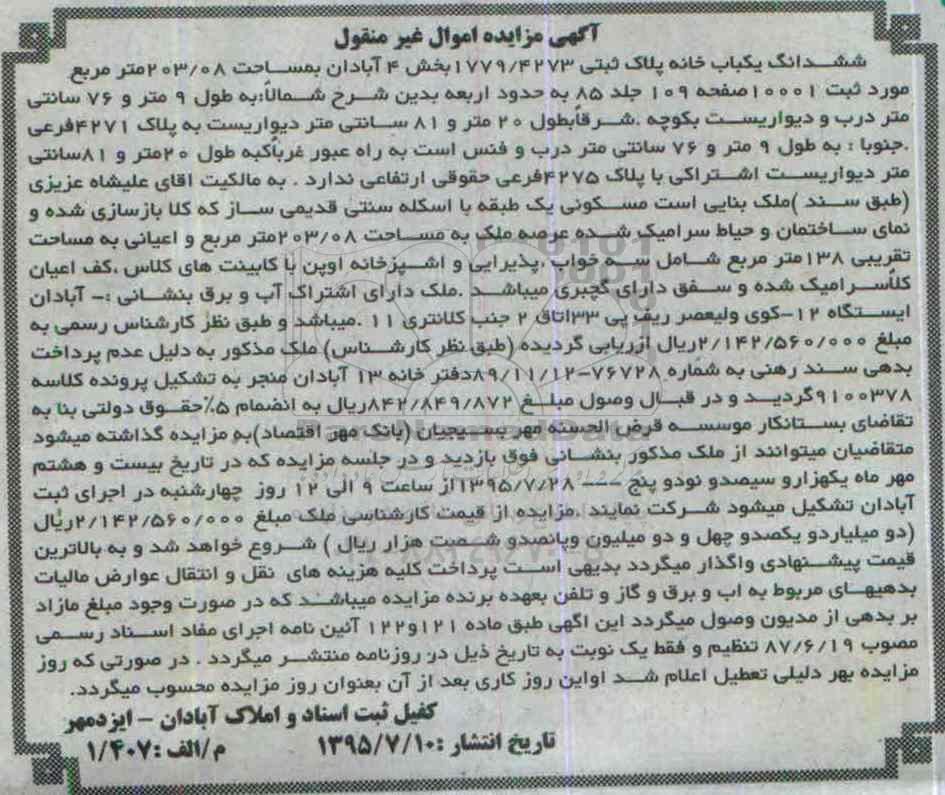 آگهی مزایده اموال غیر منقول
ششدانگ یکباب خانه پلاک ثبتی ۱۷۷۹/۴۲۷۳بخش ۴ آبادان بمساحت ۲۰۳/۰۸متر مربع
مورد ثبت ۱۰۰۰۱صفحه ۱۰۹ جلد ۸۵ به حدود اربعه بدین شرح شمالاً:به طول ۹ متر و ۷۶ سانتی
متر درب و دیواریست بکوچه .شرقاًبطول ۲۰ متر و ۸۱ سانتی متر دیواریست به پلاک ۴۲۷۱فرعی
.جنوبا : به طول ۹ متر و ۷۶ سانتی متر درب و فنس است به راه عبور غرباًکبه طول ۲۰متر و ۸۱سانتی
متر دیواریست اشتراکی با پلاک ۴۲۷۵فرعی حقوقی ارتفاعی ندارد . به مالکیت اقای علیشاه عزیزی
(طبق سند )ملک بنایی است مسکونی یک طبقه با اسکله سنتی قدیمی ساز که کلا بازسازی شده و
نمای ساختمان و حیاط سرامیک شده عرصه ملک به مساحت ۲۰۳/۰۸متر مربع و اعیانی به مساحت
تقریبی ۱۳۸متر مربع شامل سه خواب ،پذیرایی و اشپزخانه اوپن با کابینت های کلاس ،کف اعیان
کلاًسرامیک شده و سفق دارای گچبری میباشد .ملک دارای اشتراک آب و برق بنشانی :- آبادان
ایستگاه ۱۲-کوی ولیعصر ریف پی ۳۳اتاق ۲ جنب کلانتری ۱۱ .میباشد و طبق نظر کارشناس رسمی به
مبلغ ۲/۱۴۲/۵۶۰/۰۰۰ریال ازریابی گردیده (طبق نظر کارشناس) ملک مذکور به دلیل عدم پرداخت
بدهی سند رهنی به شماره ۷۶۷۲۸-۸۹/۱۱/۱۲دفتر خانه ۱۳ آبادان منجر به تشکیل پرونده کلاسه
۹۱۰۰۳۷۸گردید و در قبال وصول مبلغ ۸۴۲/۸۴۹/۸۷۲ریال به انضمام ۵٪حقوق دولتی بنا به
تقاضای بستانکار موسسه قرض الحسنه مهر بسیجیان (بانک مهر اقتصاد)به مزایده گذاشته میشود
متقاضیان میتوانند از ملک مذکور بنشانی فوق بازدید و در جلسه مزایده که در تاریخ بیست و هشتم
مهر ماه یکهزارو سیصدو نودو پنج — ۱۳۹۵/۷/۲۸از ساعت ۹ الی ۱۲ روز چهارشنبه در اجرای ثبت
آبادان تشکیل میشود شرکت نمایند .مزایده از قیمت کارشناسی ملک مبلغ ۲/۱۴۲/۵۶۰/۰۰۰ریال
(دو میلیاردو یکصدو چهل و دو میلیون وپانصدو شصت هزار ریال ) شروع خواهد شد و به بالاترین
قیمت پیشنهادی واگذار میگردد بدیهی است پرداخت کلیه هزینه های نقل و انتقال عوارض مالیات
بدهیهای مربوط به اب و برق و گاز و تلفن بعهده برنده مزایده میباشد که در صورت وجود مبلغ مازاد
بر بدهی از مدیون وصول میگردد این اگهی طبق ماده ۱۲۱و۱۲۲ آئین نامه اجرای مفاد اسناد رسمی
مصوب ۸۷/۶/۱۹ تنظیم و فقط یک نوبت به تاریخ ذیل در روزنامه منتشر میگردد . در صورتی که روز
مزایده بهر دلیلی تعطیل اعلام شد اولین روز کاری بعد از آن بعنوان روز مزایده محسوب میگردد.
کفیل ثبت اسناد و املاک آبادان - ایزدمهر
تاریخ انتشار :۱۳۹۵/۷/۱۰ م/الف :۱/۴۰۷